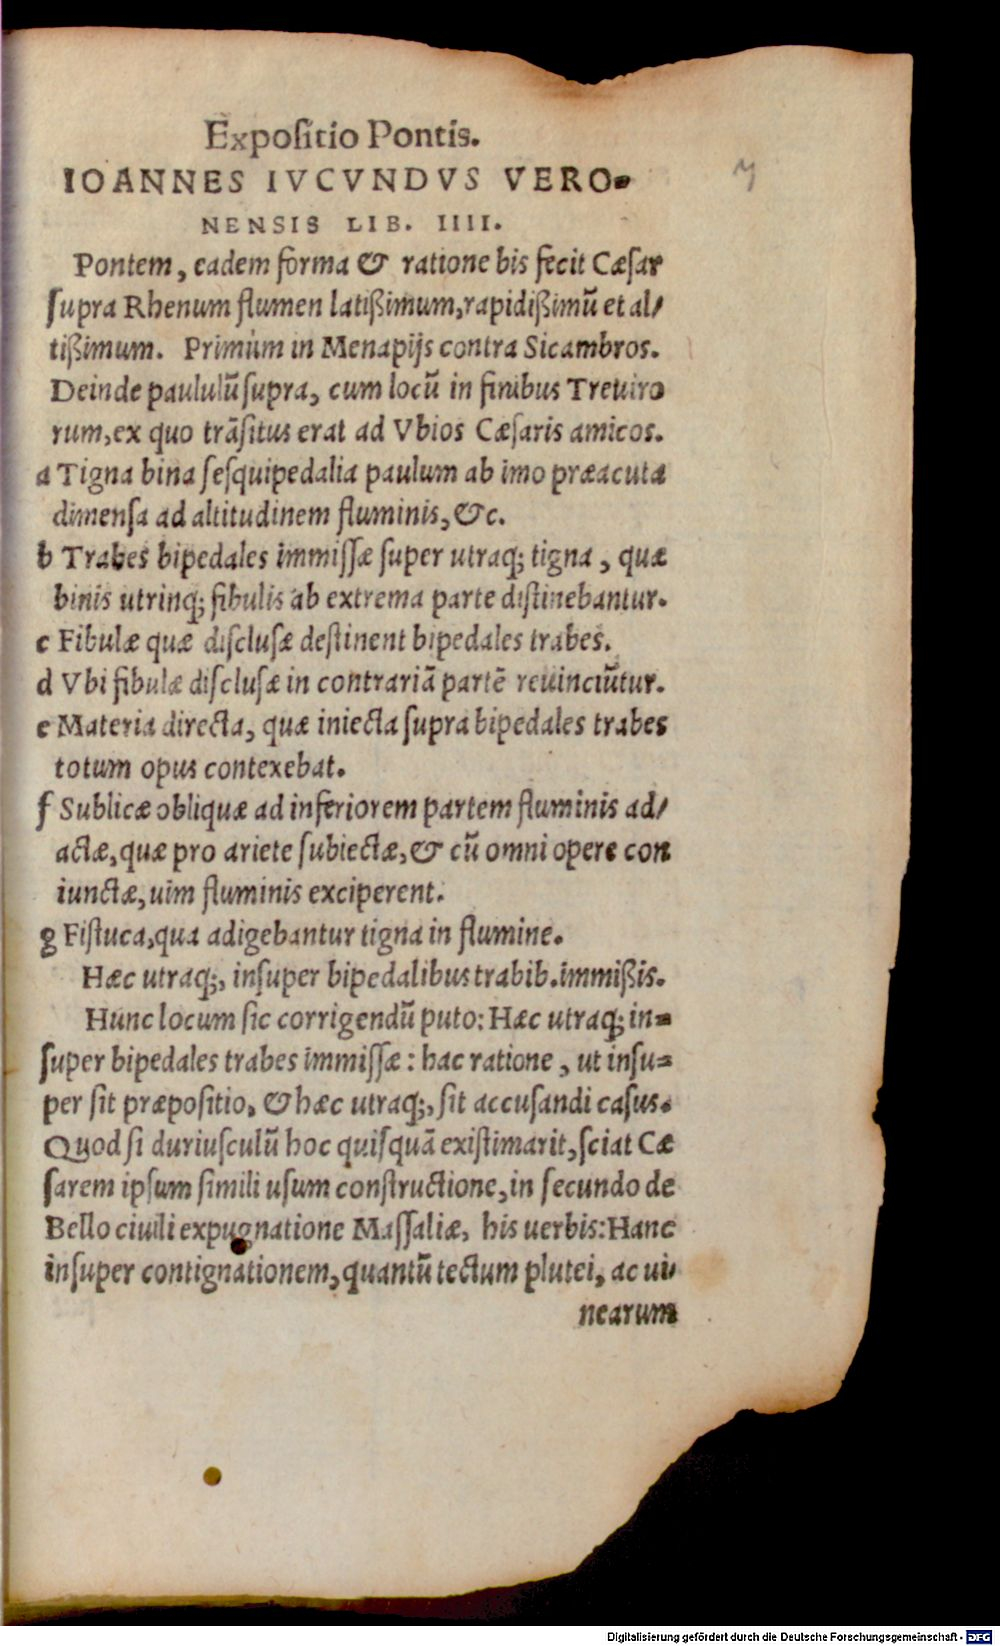 Expoſitio Pontis.
IOANNES IVCVNDVS VERO-
NENSIS LIB. IIII.
Pontem, eadem forma & ratione bis fecit Cæſar
ſupra Rhenum flumen latißimum, rapidißimū et al/
tißimum. Primùm in Menapijs contra Sicambros.
Deinde paululū ſupra, cum locū in finibus Treuiro
rum, ex quo trāſitus erat ad Vbios Cæſaris amicos.
a Tigna bina ſeſquipedalia paulum ab imo præacuta
dimenſa ad altitudinem fluminis, &c.
b Trabes bipedales immiſſæ ſuper utraq; tigna, quæ
binis utrinq; fibulis ab extrema parte diſtinebantur.
c Fibulæ quæ diſcluſæ deſtinent bipedales trabes.
d Vbi fibulæ diſcluſæ in contrariā partē reuinciūtur.
e Materia directa, quæ iniecta ſupra bipedales trabes
totum opus contexebat.
f Sublicæ obliquæ ad inferiorem partem fluminis ad/
actæ, quæ pro ariete ſubiectæ, & cū omni opere con
iunctæ, uim fluminis exciperent.
g Fiſtuca, qua adigebantur tigna in flumine.
Hæc utraq;, inſuper bipedalibus trabib. immißis.
Hunc locum ſic corrigendū puto: Hæc utraq; in-
ſuper bipedales trabes immiſſæ: hac ratione, ut inſu-
per ſit præpoſitio, & hæc utraq;, ſit accuſandi caſus.
Quod ſi duriuſculū hoc quiſquā exiſtimarit, ſciat Cæ
ſarem ipſum ſimili uſum conſtructione, in ſecundo de
Bello ciuili expugnatione Maſſaliæ, his uerbis: Hanc
inſuper contignationem, quantū tectum plutei, ac ui/
nearum
Digitalisierung gefördert durch die Deutsche Forschungsgemeinschaft - DFG